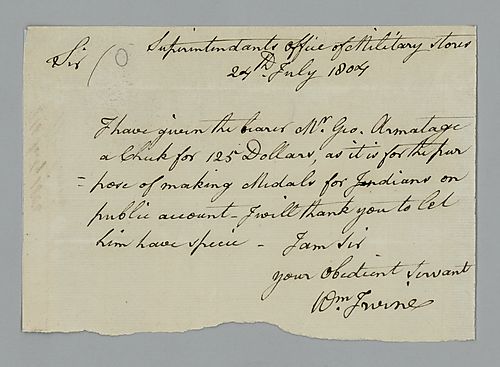 Superintendants office of Military stores
Sir
24th July. 1804
I have given the bearer Mr Geo. Armatage
a Check for 125 Dollars, as it is for the pur
= pose of making Medals for Indians on
public account - I will thank you to let
him have specie - I am Sir
your Obedient Servant
Wm Irvine